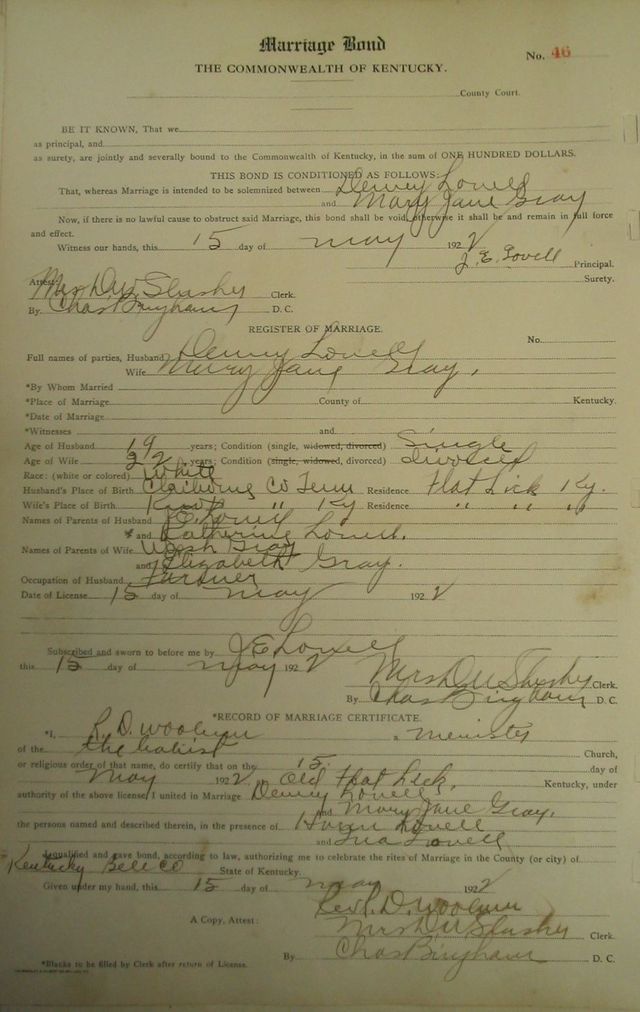 Marriage Bond
No. 46
THE COMMONWEALTH OF KENTUCKY.
County Court.
BE IT KNOWN, That we
as principal, and
as surety, are jointly and severally bound to the Commonwealth of Kentucky, in the sum of ONE HUNDRED DOLLARS.
THIS BOND IS CONDITIONED AS FOLLOWS:
That, whereas Marriage is intended to be solemnized between Dewey Lovell
and Mary Jane Gray
Now, if there is no lawful cause to obstruct said Marriage, this bond shall be void, otherwise it shall be and remain in full force
and effect.
Witness our hands, this 15 day of may 1922
J. E. Lovell Principal.
Surety.
Attest
Mrs D. W. Slusher Clerk.
By Chas Bingham D. C.
REGISTER OF MARRIAGE.
No.
Full names of parties, Husband Dewey Lovell
Wife Mary Jane Gray.
*By Whom Married
*Place of Marriage County of Kentucky.
*Date of Marriage
*Witnesses and
Age of Husband 19 years; Condition (single, widowed, divorced) Single
Age of Wife 22 years; Condition (single, widowed, divorced) Divorced
Race: (white or colored) White
Husband's Place of Birth Claiborne Co Tenn Residence Flat Lick Ky.
Wife's Place of Birth Knox " Ky Residence " " "
Names of Parents of Husband J. E. Lovell
and Katherine Lovell.
Names of Parents of Wife Wash Gray
and Elizabeth Gray.
Occupation of Husband Farmer
Date of License 15 day of may 1922
Subscribed and sworn to before me by J E Lovell
this 15 day of may 1922
Mrs D W Slusher Clerk.
By Chas Bingham D. C.
*RECORD OF MARRIAGE CERTIFICATE.
*I, R. D. a minister
of the the Babist Church,
or religious order of that name, do certify that on the 15. day of
May 1922, Old Flat Lick, Kentucky, under
authority of the above license, I united in Marriage Dewey Lovell
and Mary Jane Gray.
the persons named and described therein, in the presence of Lovell
and Ina Lovell
I qualified and gave bond, according to law, authorizing me to celebrate the rites of Marriage in the County (or city) of
Kentucky Bell Co State of Kentucky.
Given under my hand, this 15 day of may 1922
Rev. D.
A Copy, Attest: Mrs D W Slusher Clerk.
By Chas Bingham D. C.
*Blanks to be filled by Clerk after return of License.